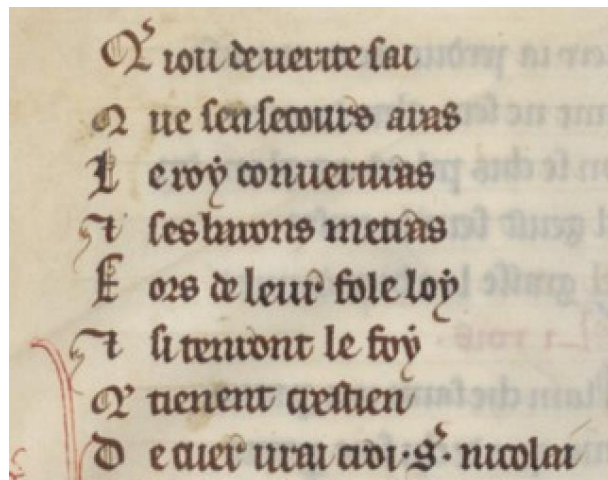 Q̃ iou de uerite sai
Q ue sen secours aras
L e roy conuertiras
⁊ ses barons metras
F ors de leur fole loy
⁊ si tenront le foy
Q̃ tienent crestien
D e cuer urai croi ·S· nicolai